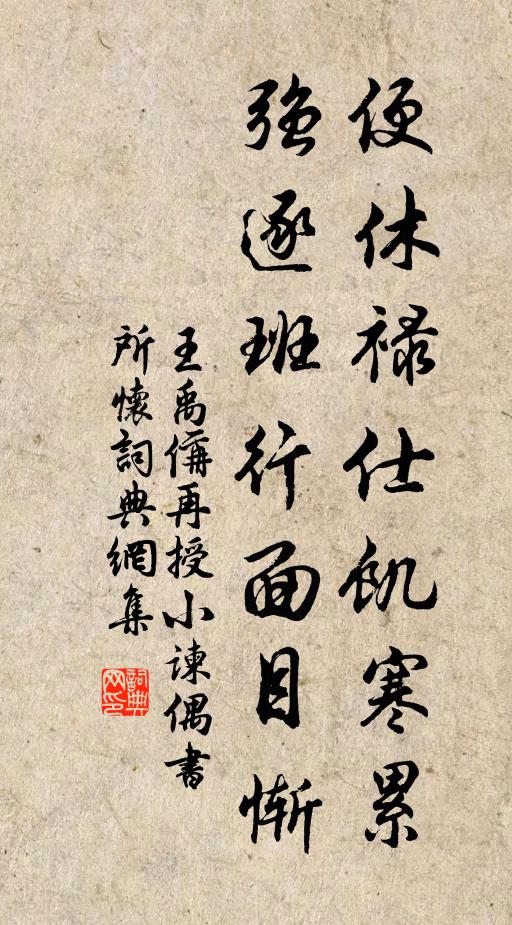 便休禄仕飢寒累
强逐班行面目慚
王禹偁再授小諫偶書
所懷詞典網集
詞典
网印